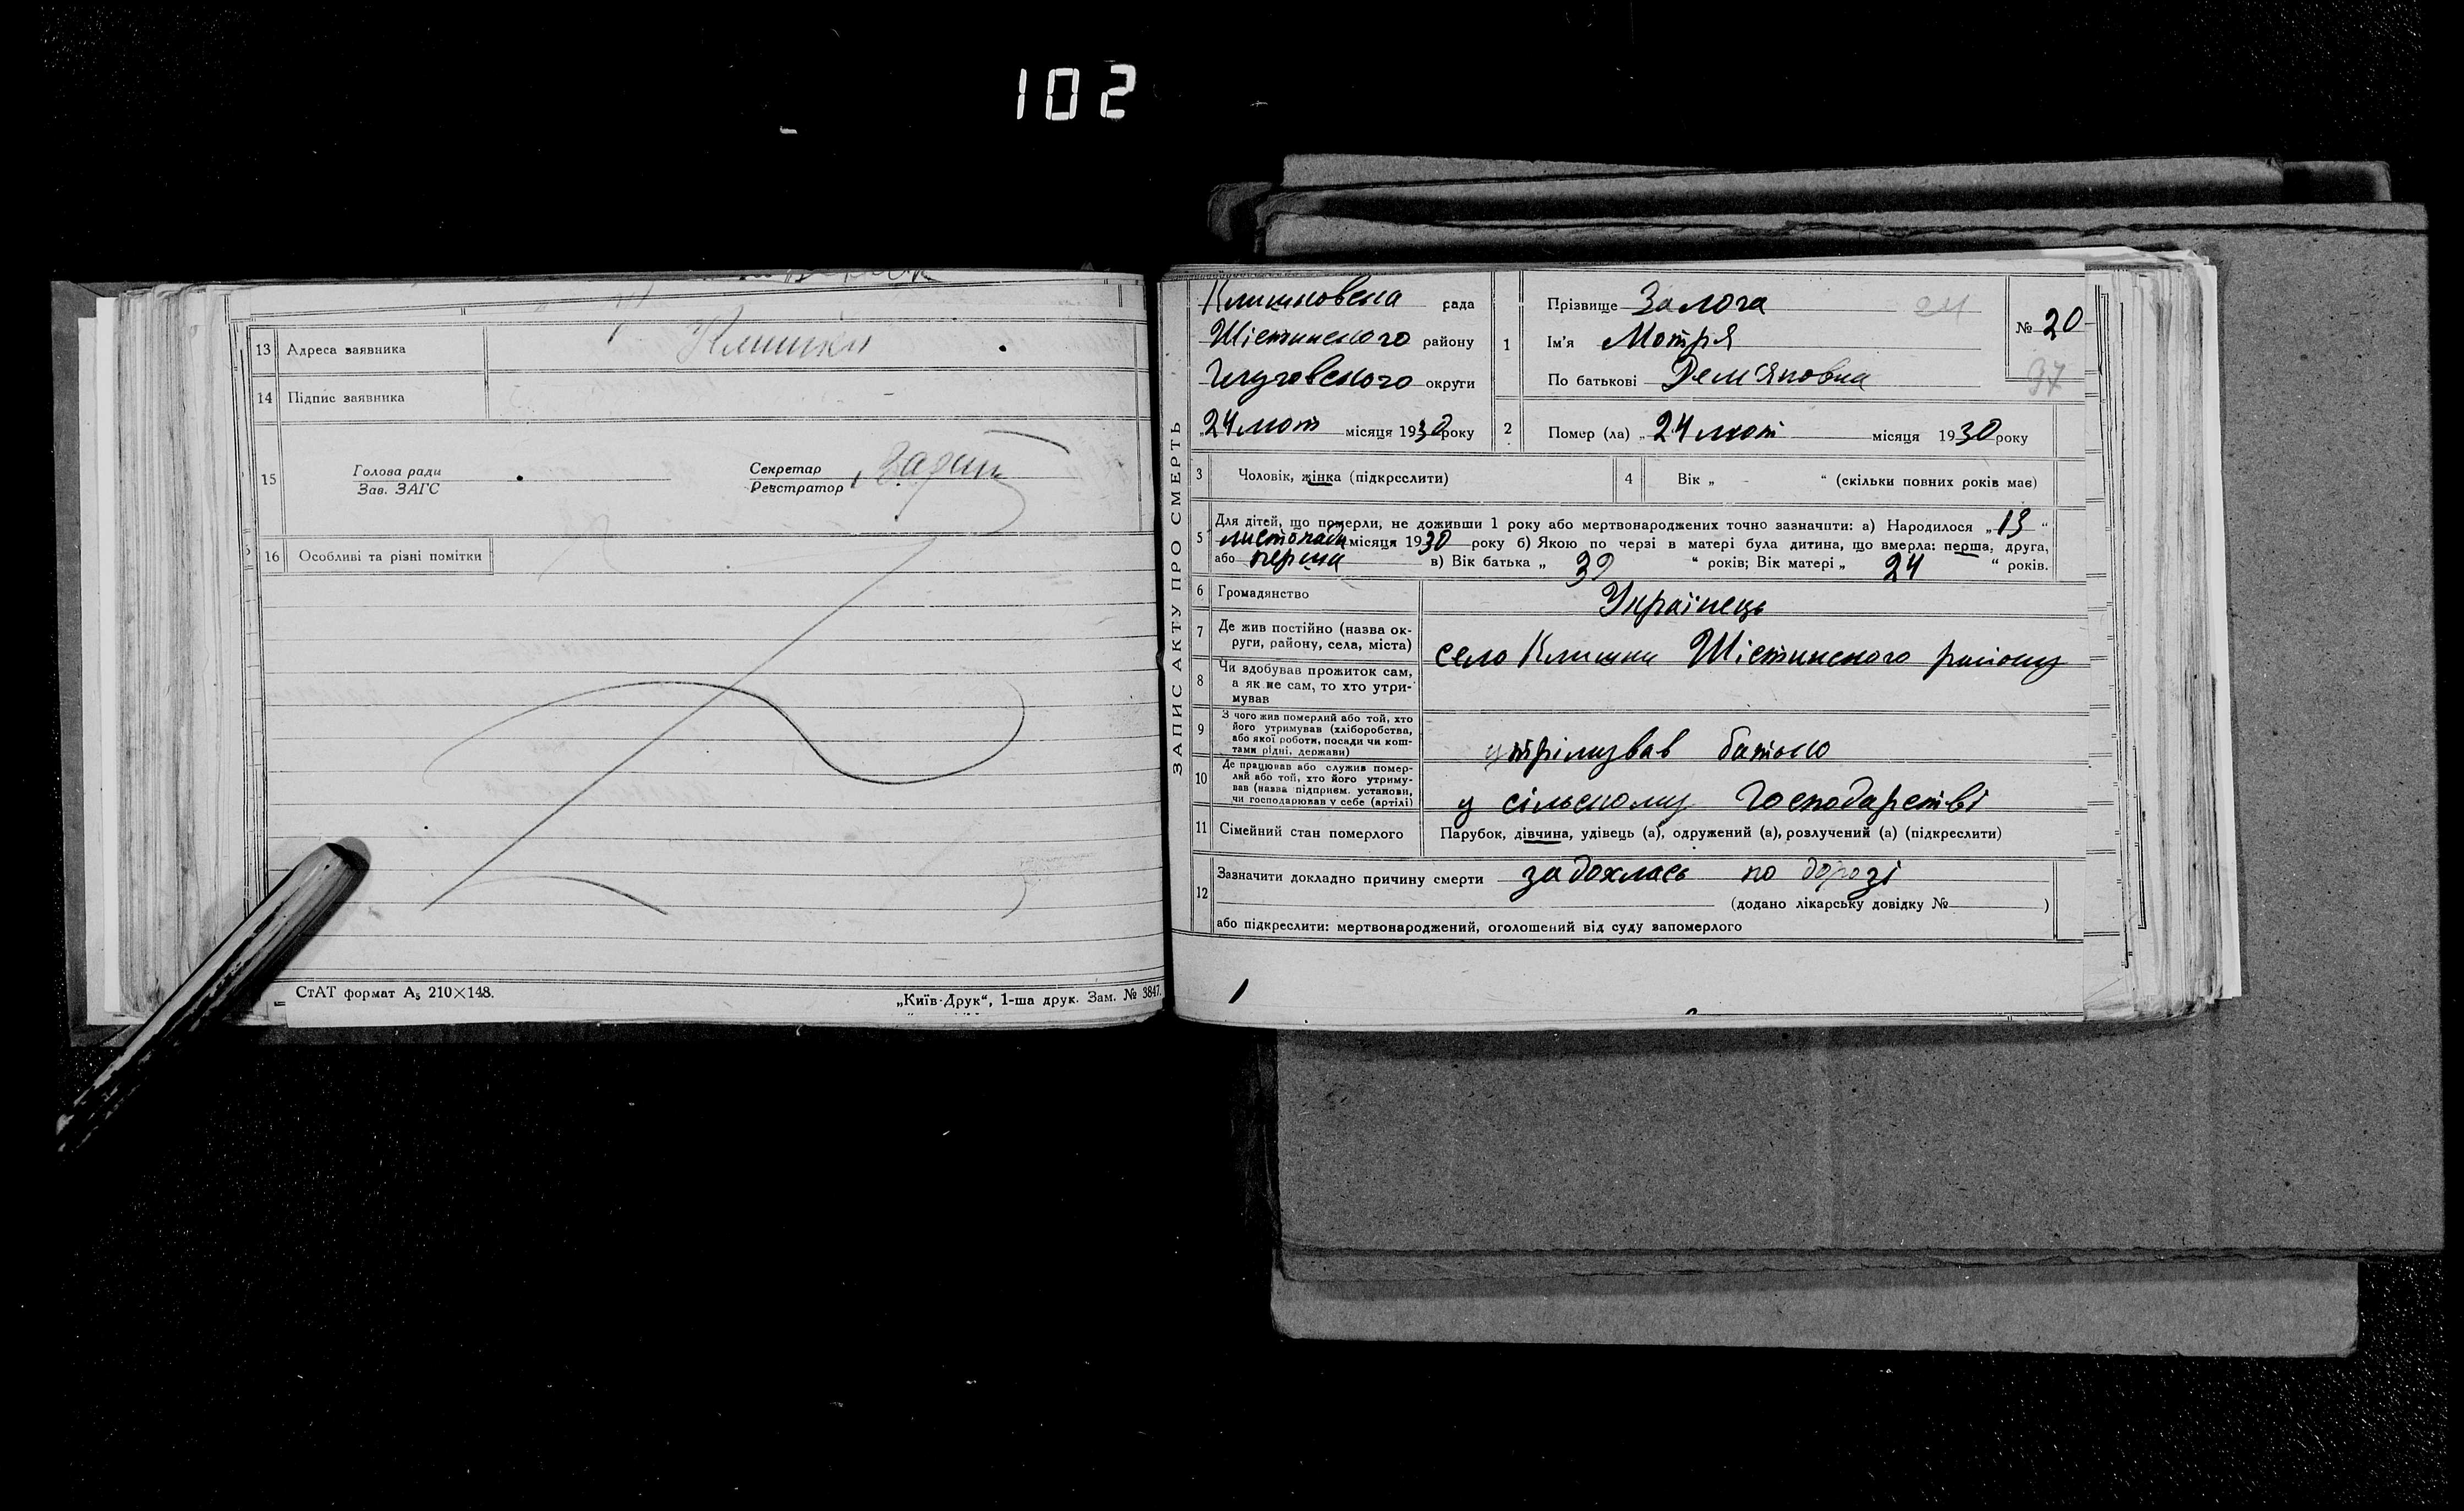 102
13 Адреса заявника Клишки
14 Підпис заявника
15 Голова ради Секретар
Зав. ЗАГС Реєстратор
16 Особливі та різні помітки
СтАТ формат А5 210×148. „Київ-Друк“, 1-ша друк. Зам. № 3847.
ЗАПИС АКТУ ПРО СМЕРТЬ
Клишковська рада
Шістинського району
Глуховського округи
„24 лют місяця 1930 року
1 Прізвище Залога 24
Ім'я Мотря
По батькові Дем'яновна
№ 20
37
2 Помер (ла) „24 лют місяця 1930 року
3 Чоловік, жінка (підкреслити)
4 Вік „ - “ (скільки повних років має)
5 Для дітей, що померли, не доживши 1 року або мертвонароджених точно зазначити: а) Народилося „13“
листопада місяця 1930 року б) Якою по черзі в матері була дитина, що вмерла: перша, друга,
або перша в) Вік батька „ 39 “ років; Вік матері „ 24 “ років.
6 Громадянство Українець
7 Де жив постійно (назва округи, району, села, міста) село Клишки Шістинского району
8 Чи здобував прожиток сам,
а як не сам, то хто утримував
9 З чого жив померлий або той, хто
його утримував (хліборобства,
або якої роботи, посади чи коштами рідні, держави) утрімував батько
10 Де працював або служив померлий або той, хто його утримував (назва підприєм. установи,
чи господарював у себе (артілі) у сільському господарстві
11 Сімейний стан померлого Парубок, дівчина, удівець (а), одружений (а), розлучений (а) (підкреслити)
12 Зазначити докладно причину смерти задохлась по дорозі
(додано лікарську довідку № )
або підкреслити: мертвонароджений, оголошений від суду запомерлого